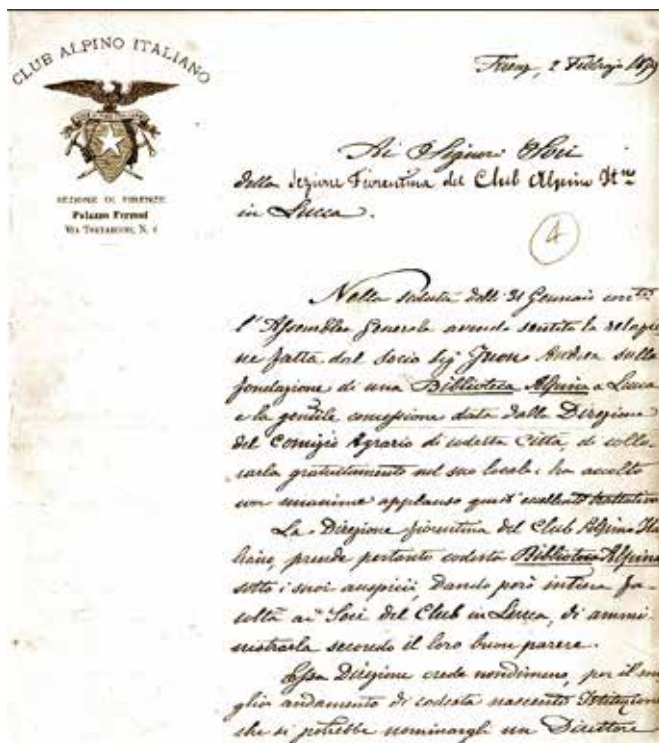 CLUB ALPINO ITALIANO
SEZIONE DI FIRENZE
Palazzo Ferroni
VIA TORNABUONI, N. 4
2 Febbrajo
Ai Signori Soci
della Sezione Fiorentina del Club Alpino It.no
in Lucca.
4
Nella seduta delli 31 Gennaio
l'Assemblea Generale avendo sentita la relazio
ne fatta dal Socio Sig. Andrea sulla
fondazione di una Biblioteca Alpina a Lucca
e la gentile concessione data dalla Direzione
del Comizio Agrario di codesta Città, di collo-
carla gratuitamente nel suo locale; ha accolto
con unanime applauso
La Direzione fiorentina del Club Alpino Ita
liano, prende pertanto codesta Biblioteca Alpina
sotto i suoi auspicii, dando però intiera fa-
coltà ai Soci del Club in Lucca, di ammi-
nistrarla secondo il loro buon parere.
Essa Direzione crede nondimeno, per il mi
glior andamento di codesta nascente Istituzione
che si potrebbe nominargli un Direttore